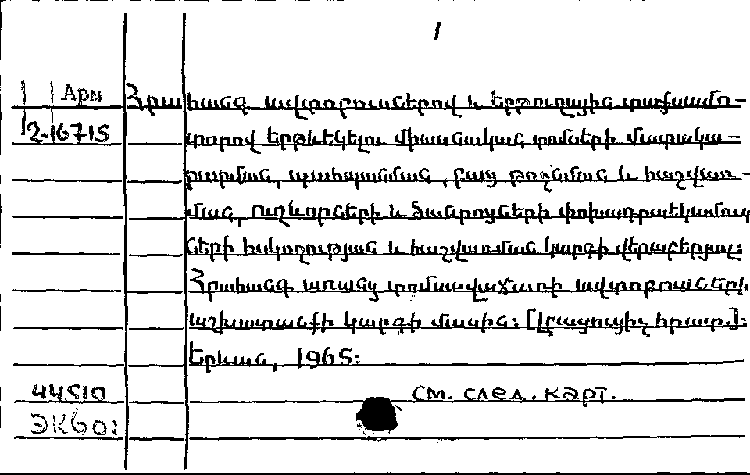 1
Арм Հրահանգ ավտոբուսներով և երթուղային տաքսամո-
2-16715 տորով երթևեկելու միասնական տոմսերի մատակա-
րարման, պահպանման, բաց թողնման և հաշվառ-
ման, ուղևորների և ծանրոցների փոխադրաեկամուտ
ների հսկողության և հաշվառման կարգի վերաբերյալ:
Հրահանգ առանց տոմսավաճառի ավտոբուսների
աշխատանքի կարգի մասին: [Լրացուցիչ հրատ.]:
Երևան, 1965:
44510 см. след. карт.
ЭКБО: